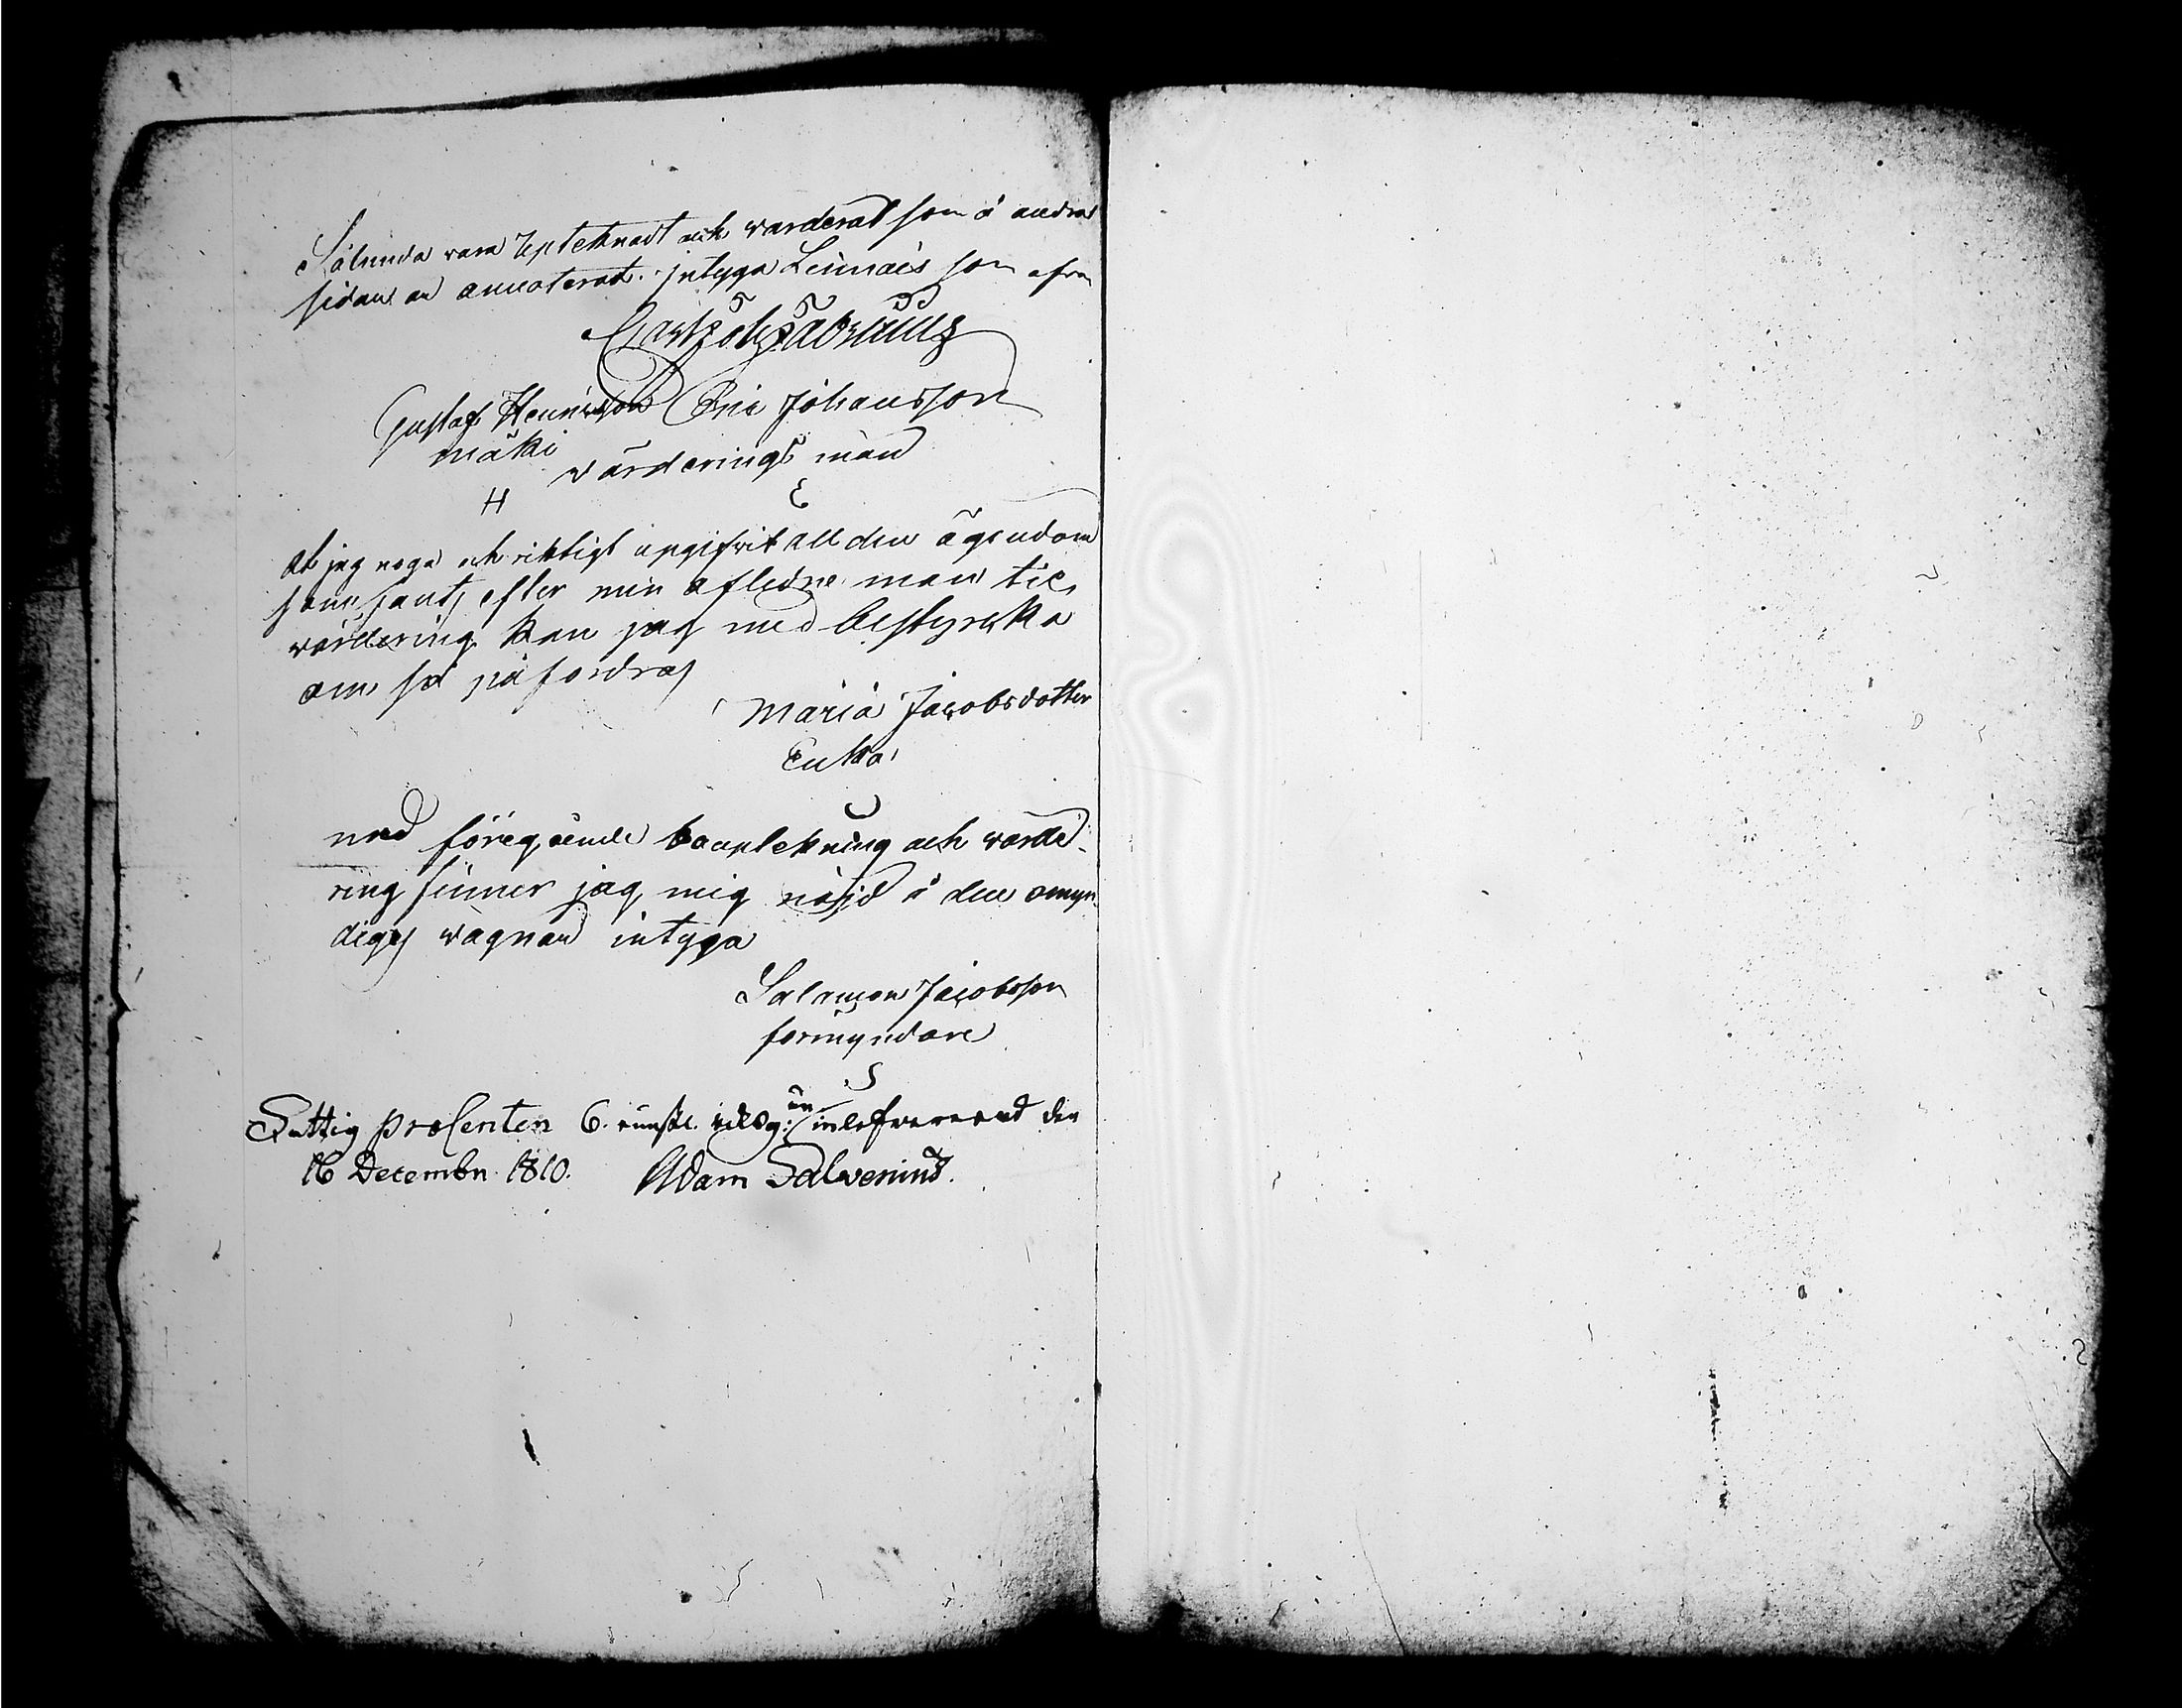 Sålunda vara Upteknadt och värderat som å andra
sidan är annoterat. intyga Leinais som ofvan
Gustaf Henricsson Eric Johansson
mäki
värderings män
H E
At jag noga och riktigt upgifvit all den ägendom
som fants efter min aflidne man till
värdering kan jag med bestyrcka
om så påfordras
Maria Jacobsdotter
Enka
med föregående bouptekning och värde-
ring finner jag mig nöjd å den omyn-
diges vägnar intyga
Salomon Jacobsson
förmyndare
S
Fattig procenten 6. runst. är inlefvererad den
16 Decembr. 1810. Adam Salvenius.